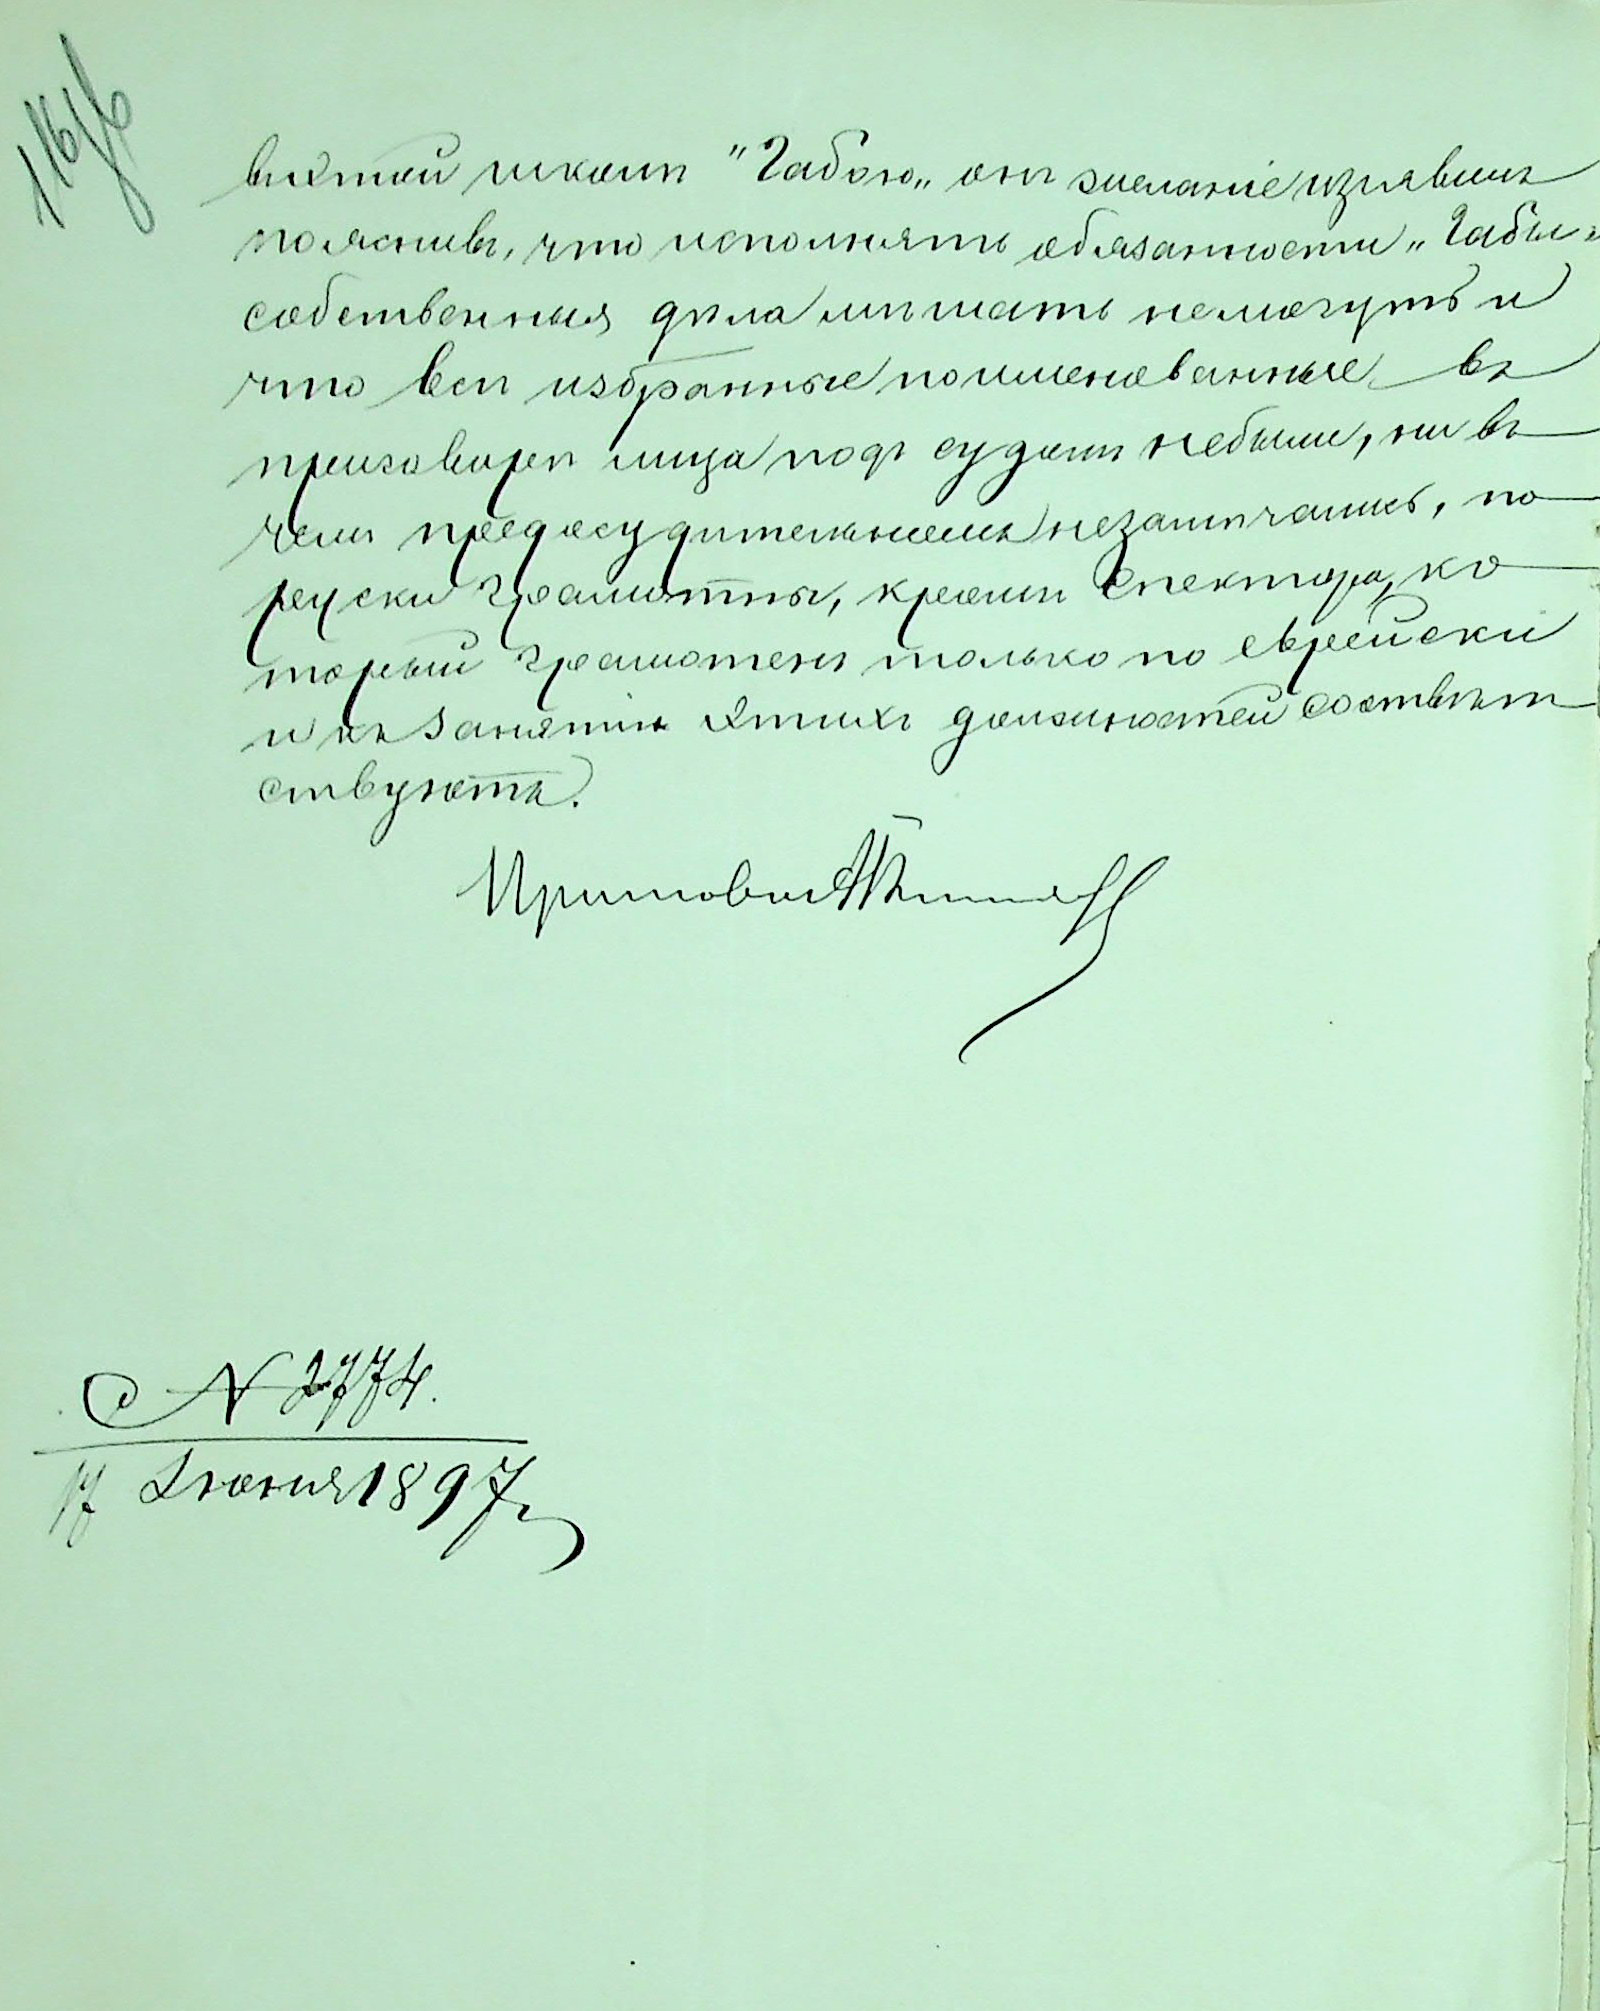 116 об
въ этой школѣ "Габою„ онъ желаніе изъявилъ
пояснивъ, что исполнять обязанности „Габы"
собственныя дѣла мѣшать немогутъ и
что всѣ избранные поименованные въ
приговорѣ лица подъ судомъ небыли, ни въ
чемъ предосудительномъ незамѣчались, по
русски грамотны, кромѣ Спектора, ко
торый грамотенъ только по еврейски
и къ занятію этихъ должностей соотвѣт
ствуютъ.
Приставъ
№ 2774.
17 Июня 1897 г.